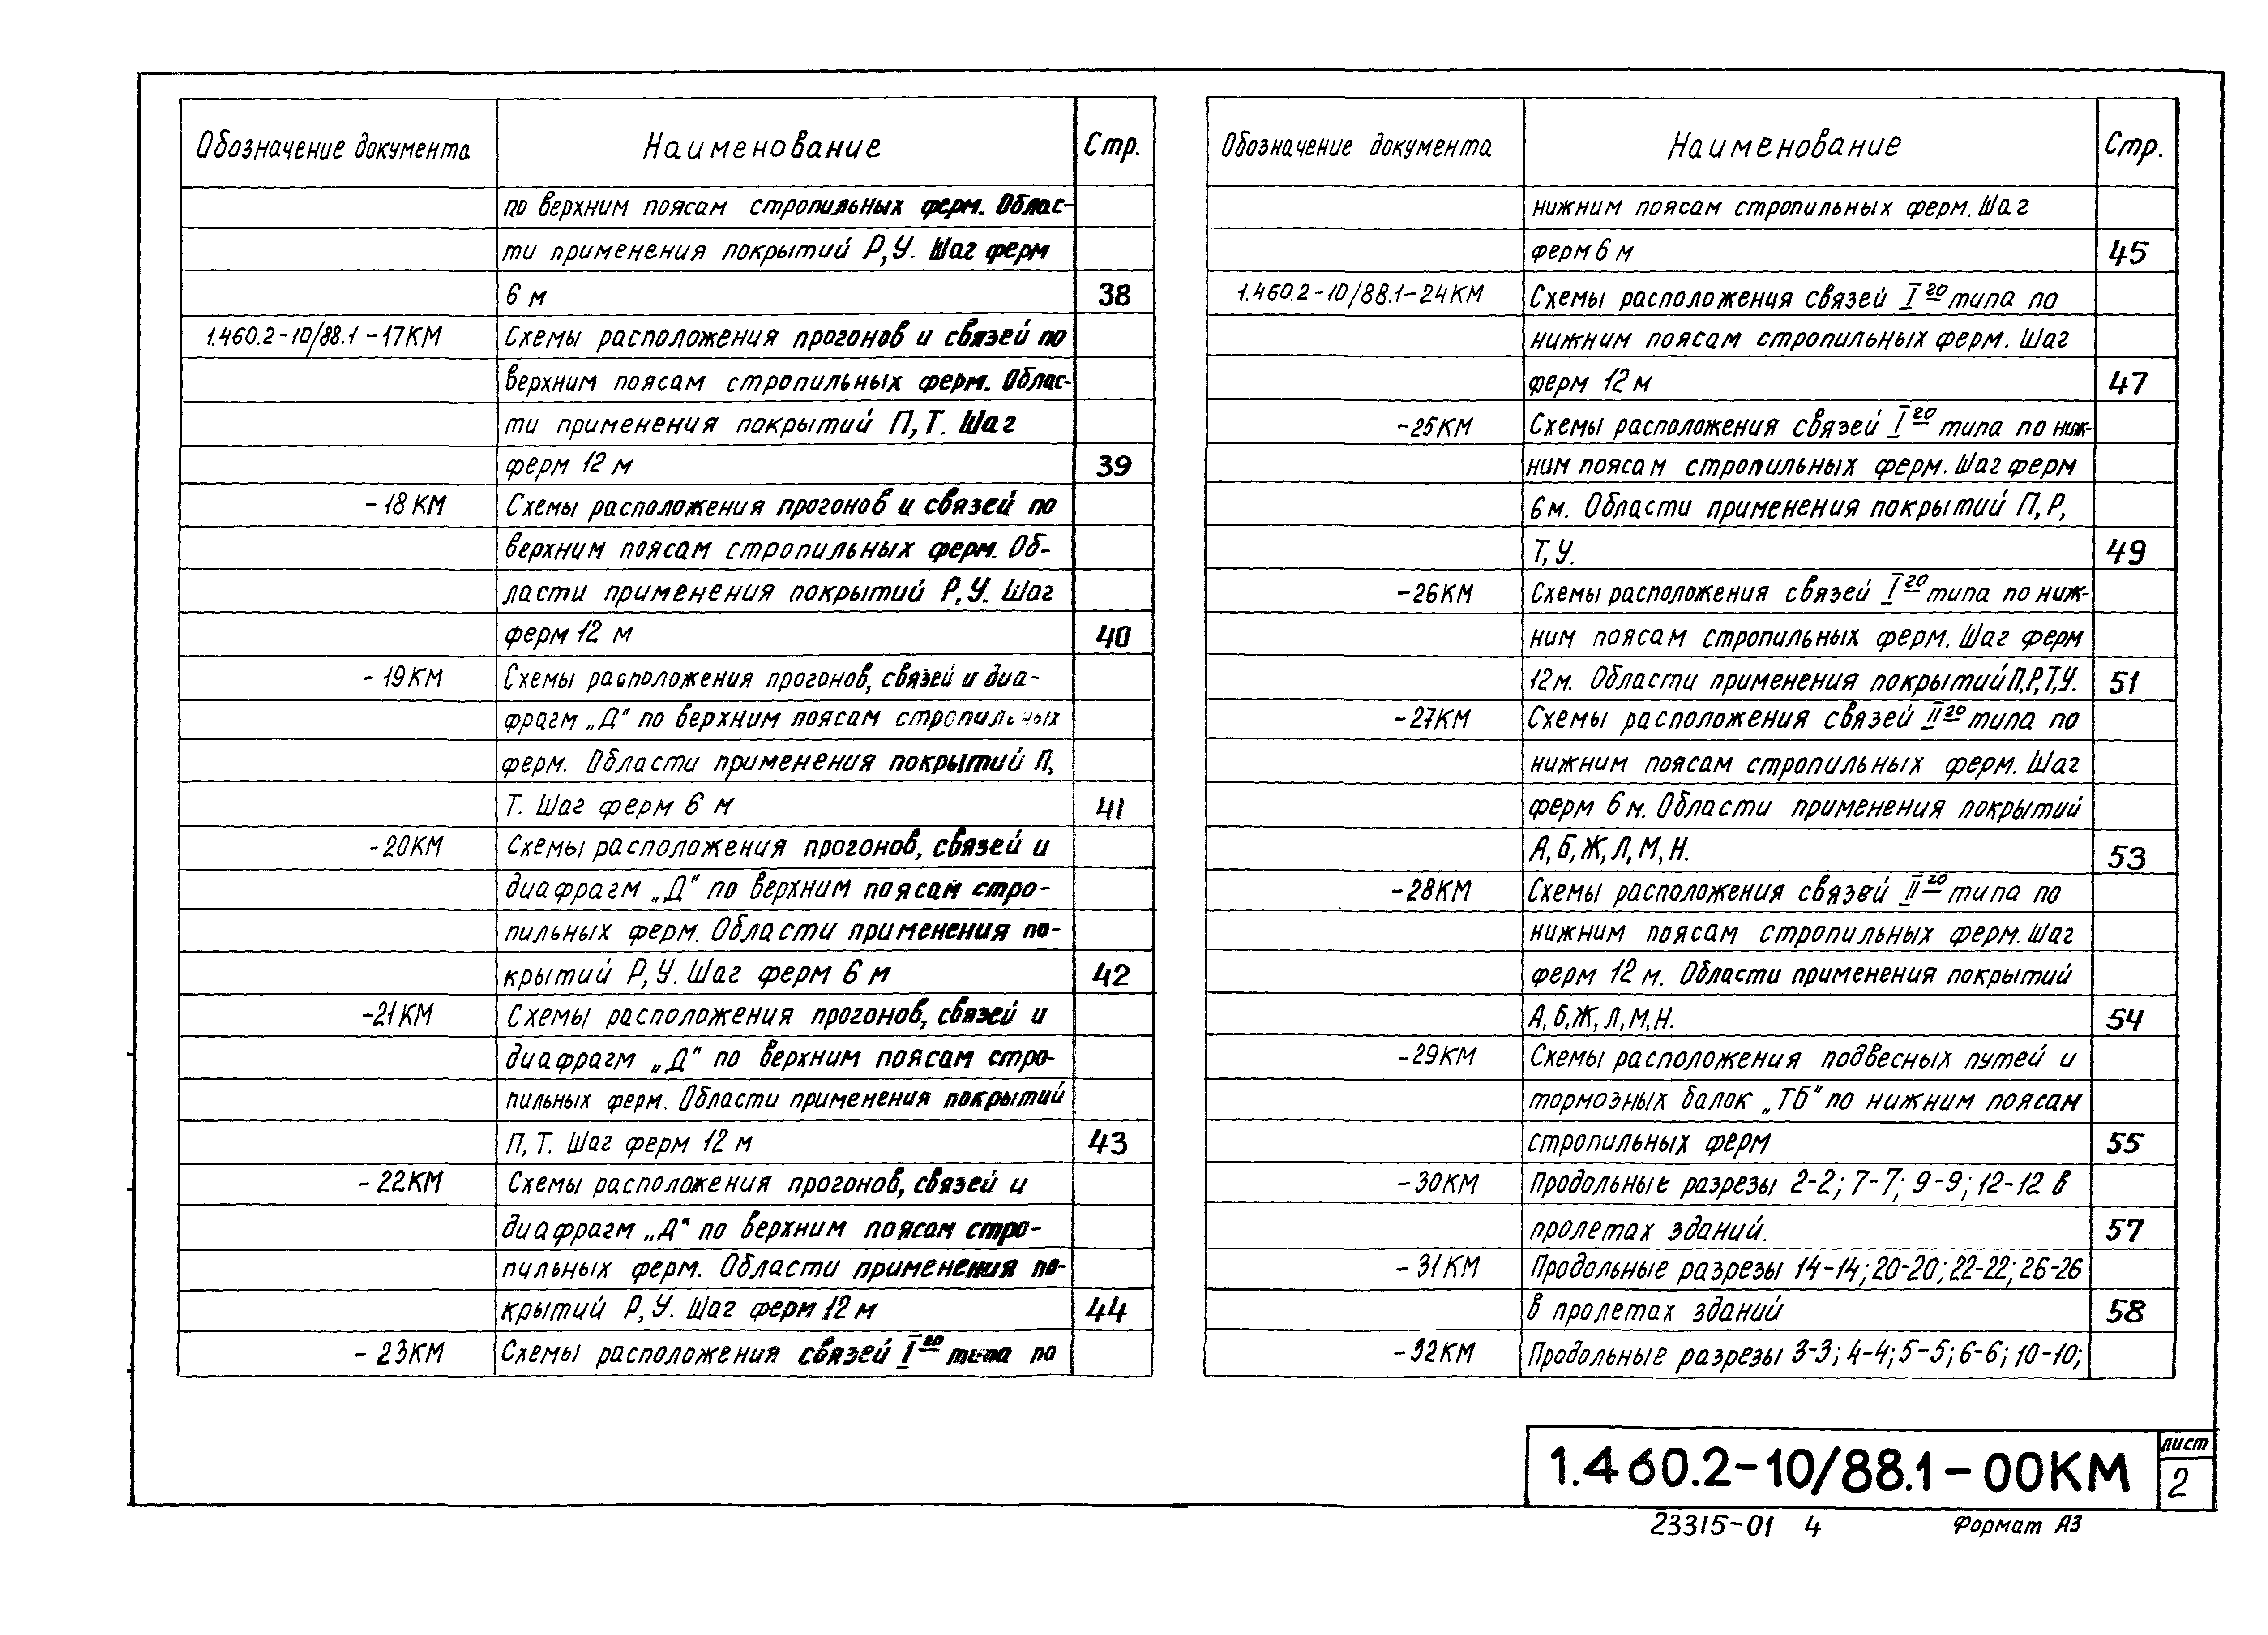 Обозначение документа Наименование Стр.
по верхним поясам стропильных ферм. Облас-
ти применения покрытий Р, У. Шаг ферм
6 м 38
1.460.2-10/88.1-17КМ Схемы расположения прогонов и связей по
верхним поясам стропильных ферм. Облас-
ти применения покрытий П, Т. Шаг
ферм 12 м 39
-18КМ Схемы расположения прогонов и связей по
верхним поясам стропильных ферм. Об-
ласти применения покрытий Р, У. Шаг
ферм 12 м 40
-19КМ Схемы расположения прогонов, связей и диа-
фрагм „Д" по верхним поясам стропильных
ферм. Области применения покрытий П,
Т. Шаг ферм 6 м 41
-20КМ Схемы расположения прогонов, связей и
диафрагм „Д" по верхним поясам стро-
пильных ферм. Области применения по-
крытий Р, У. Шаг ферм 6 м 42
-21КМ Схемы расположения прогонов, связей и
диафрагм „Д" по верхним поясам стро-
пильных ферм. Области применения покрытий
П, Т. Шаг ферм 12 м 43
-22КМ Схемы расположения прогонов, связей и
диафрагм „Д" по верхним поясам стро-
пильных ферм. Области применения по-
крытий Р, У. Шаг ферм 12 м 44
-23КМ Схемы расположения связей I го типа по
Обозначение документа Наименование Стр.
нижним поясам стропильных ферм. Шаг
ферм 6 м 45
1.460.2-10/88.1-24КМ Схемы расположения связей I го типа по
нижним поясам стропильных ферм. Шаг
ферм 12 м 47
-25КМ Схемы расположения связей I го типа по ниж-
ним поясам стропильных ферм. Шаг ферм
6 м. Области применения покрытий П, Р,
Т, У. 49
-26КМ Схемы расположения связей I го типа по ниж-
ним поясам стропильных ферм. Шаг ферм
12 м. Области применения покрытий П, Р, Т, У. 51
-27КМ Схемы расположения связей II го типа по
нижним поясам стропильных ферм. Шаг
ферм 6 м. Области применения покрытий
А, Б, Ж, Л, М, Н. 53
-28КМ Схемы расположения связей II го типа по
нижним поясам стропильных ферм. Шаг
ферм 12 м. Области применения покрытий
А, Б, Ж, Л, М, Н. 54
-29КМ Схемы расположения подвесных путей и
тормозных балок „ТБ" по нижним поясам
стропильных ферм 55
-30КМ Продольные разрезы 2-2; 7-7; 9-9; 12-12 в
пролетах зданий. 57
-31КМ Продольные разрезы 14-14; 20-20; 22-22; 26-26
в пролетах зданий 58
-32КМ Продольные разрезы 3-3; 4-4; 5-5; 6-6; 10-10;
1.460.2-10/88.1-00КМ
лист
2
23315-01 4 Формат А3